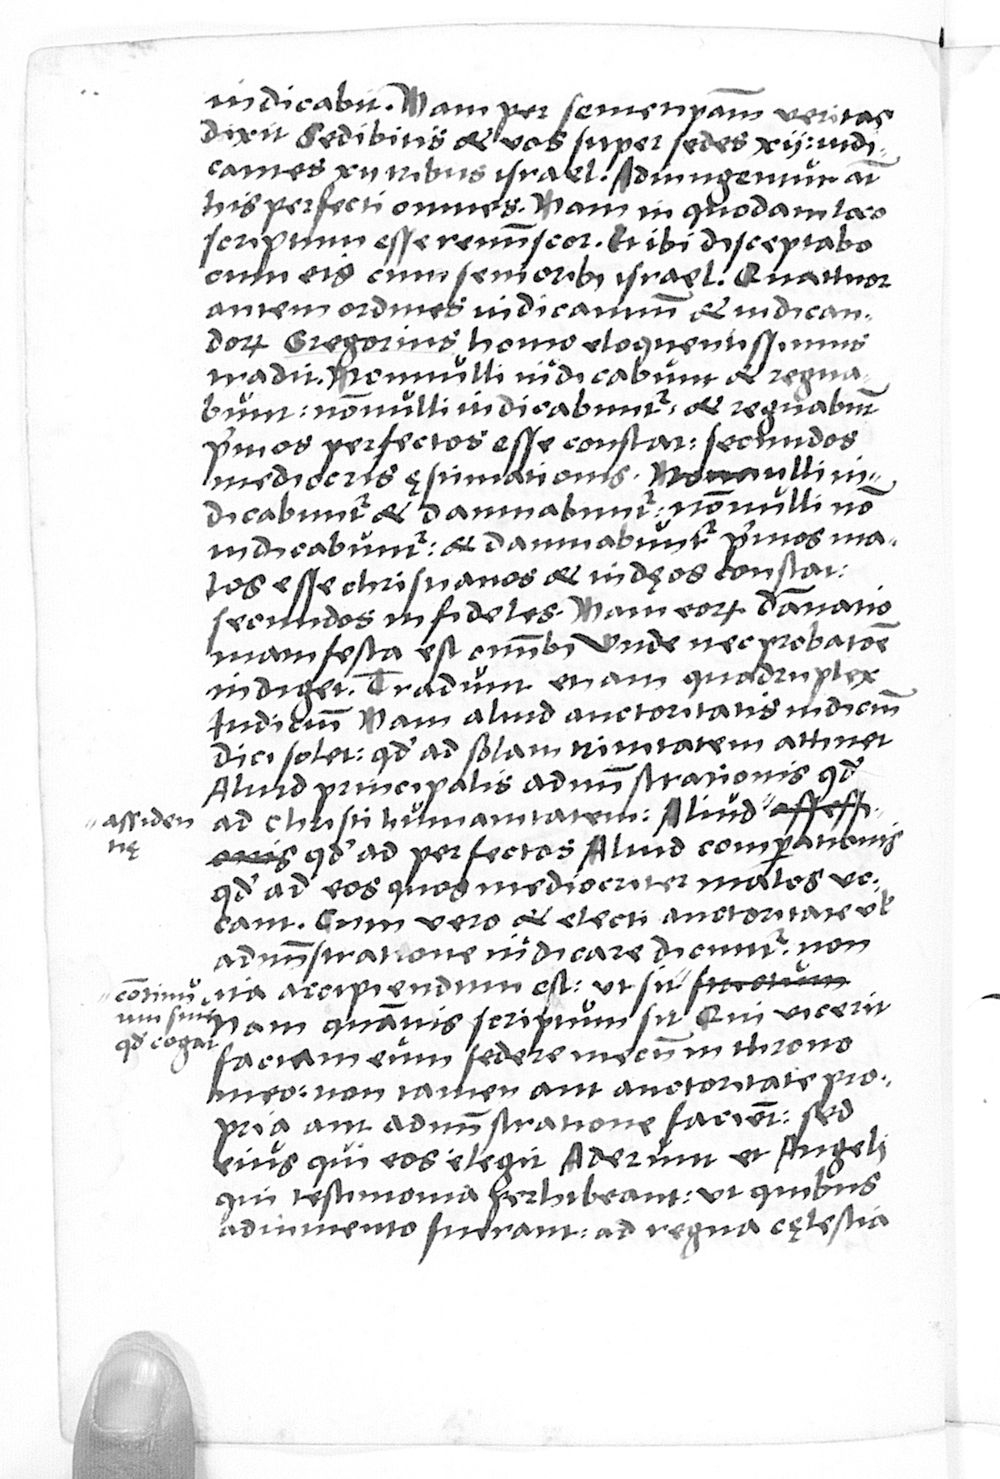 iudicabit. Nam per semetipsam veritas
dixit Sedibitis & vos super sedes xij: iudi-
cantes xii tribus israel. Adiungentur aūt
his perfecti omnes. Nam in quodam loco
scriptum esse reminiscor. Et ibi disceptabo
cum eis cum seniorib; israel. Quattuor
autem ordines iudicantiū & iudican-
doꝝ Gregorius homo eloquentissimus
tradit. Nonnulli iudicabunt & regna-
bunt: nōnulli iudicabunt᷑: & regnabūt
p̄mos perfectos esse constat: secundos
mediocris ęstimationis. Nonnulli iu-
dicabunt᷑ & damnabunt᷑: nōnulli nō
iudicabunt᷑: & damnabunt᷑ p̄mos ma-
los esse christianos & iudęos constat:
secundos infideles. Nam eoꝝ dānatio
manifesta est omīb; Unde nec probatoē
indiget. Tradunt etiam quadruplex
Iudiciū Nam aliud auctoritatis iudiciū
dici solet: qd̓ ad solam trinitatem attinet
Aliud principalis adminīstrationis qd̓
ad christi humanitatem: Aliud assessi-
onis qd̓ ad perfectos Aliud comparationis
assiden
tię
qd̓ ad eos quos mediocriter malos vo-
cant. Cum vero & electi auctoritate vł
adminīstratione iudicare dicunt᷑: non
ita accipiendum est: ut sit
cōtinu
um sine
qd̓ cogat
Nam quāuis scriptum sit Qui vicerit
faciam eum sedere mecū in throno
meo: non tamen aut auctoritate pro-
pria aut adminīstratione facient: sed
eius qui eos elegit Aderunt et Angeli
qui testimonia perhibeant: ut quibus
adiumento fuerant: ad regna cęlestia